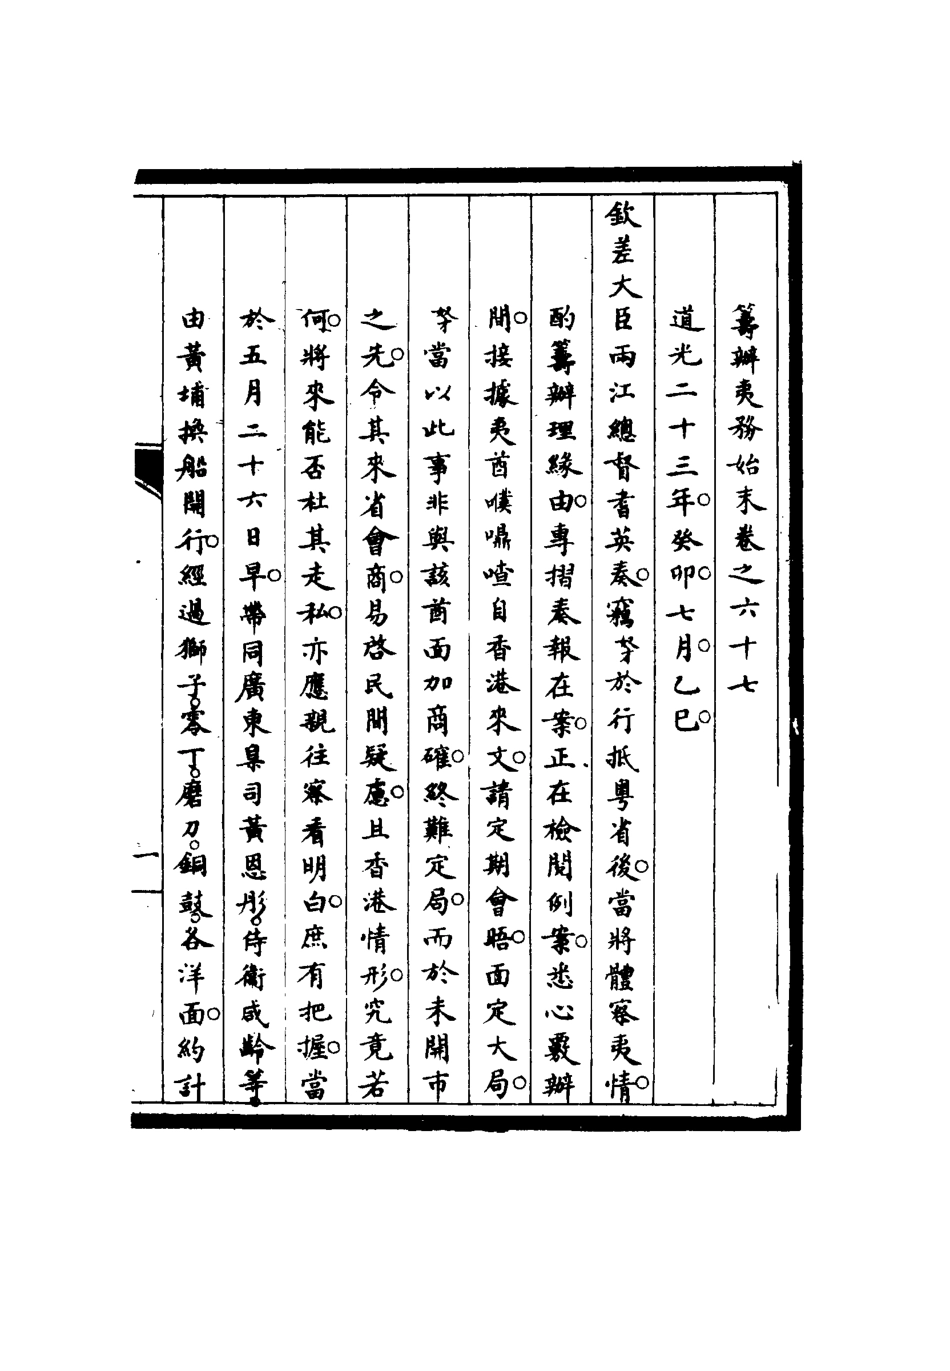 籌辦夷務始末卷之六十七
道光二十三年。癸卯。七月。乙巳。
欽差大臣兩江總督耆英奏。竊孥於行抵粵省後。當將體察夷情。
酌籌辦理緣由。專摺奏報在案。正在檢閱例案。悉心覈辦
間。接據夷酋噗嘪喳自香港來文。請定期會晤。面定大局。
孥當以此事非與該酋面加商確。終難定局。而於未開市
之先。令其來省會商。易啓民間疑慮。且香港情形。究竟若
何。將來能否杜其走私。亦應親往察看明白。庶有把握。當
於五月二十六日早。帶同廣東臬司黃恩彤。侍衛咸齡等。
由黃埔換船開行。經過獅子。零丁。磨刀。銅鼓。各洋面。約計
一